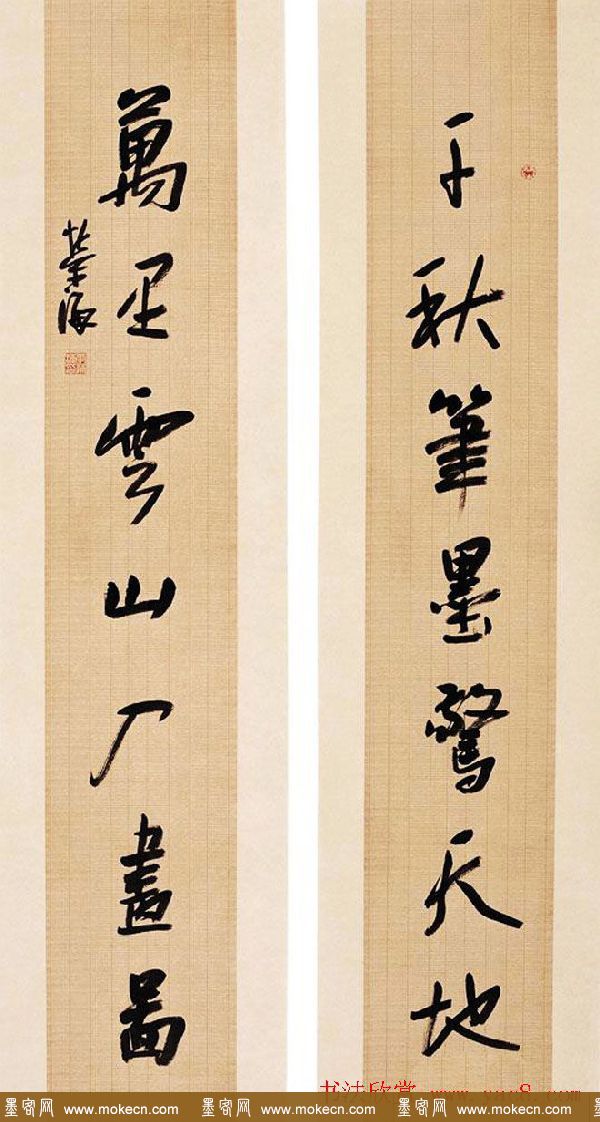 千秋筆墨驚天地
萬里雲山入畫圖
書法欣赏 www.yac8.com
墨客网 www.mokecn.com 墨客网 www.mokecn.com 墨客网 www.mokecn.com